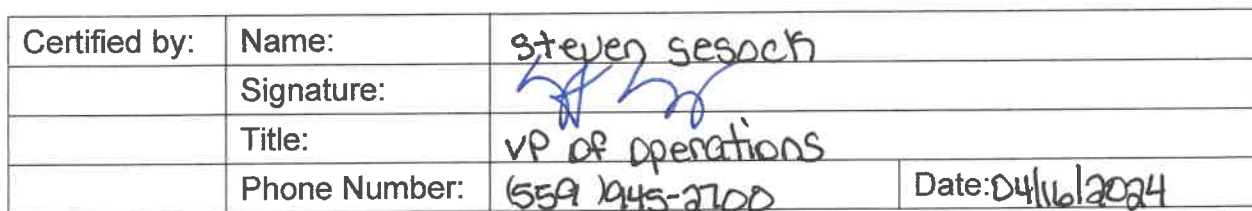 Certified by: Name: Steven Sesock
Signature:
Title: VP of operations
Phone Number: (559)945-2700 Date:04/16/2024